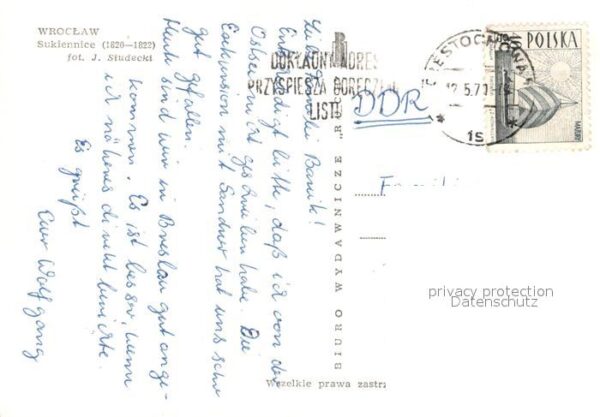 WROCŁAW
Sukiennice (1820—1822)
fot. J. Siudecki
DOKŁADNY ADRES
PRZYSPIESZA DORĘCZENIE
LISTU
CZĘSTOCHOWA 1
12.5.70
1s
POLSKA
MAZURY
DDR
Liebe Familie
Entschuldigt bitte, daß ich von der
Ostsee nicht geschrieben habe. Die
Exkursion mit Sandner hat uns sehr
gut gefallen.
Heute sind wir in Breslau gut ange-
kommen. Es ist besser, wenn
ich näheres direkt berichte.
Es grüßt
Euer Wolfgang
BIURO WYDAWNICZE "RUCH"
Wszelkie prawa zastrz
privacy protection
Datenschutz